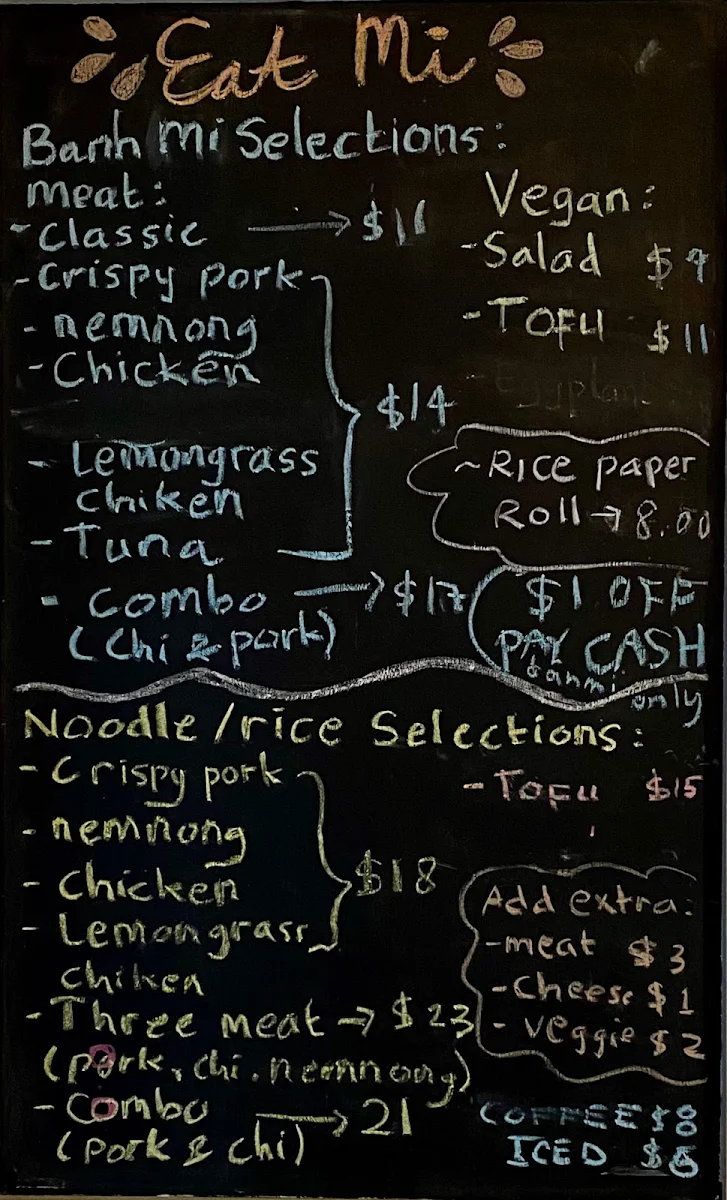 Eat Mi
Banh Mi Selections:
meat:
- Classic → $11
- Crispy pork
- nemnong
- Chicken
- Lemongrass
chiken
- Tuna
$14
- Combo → $17
(Chi & pork)
Vegan:
- Salad $9
- TOFU $11
- Eggplant
~ Rice paper
Roll → 8.00
$1 OFF
PAY CASH
banmi only
Noodle / rice Selections:
- Crispy pork
- nemnong
- Chicken
- Lemongrass
chiken
$18
- Three meat → $23
(pork, chi. nemnong)
- Combo → 21
(pork & chi)
- Tofu $15
Add extra:
- meat $3
- Cheese $1
- veggie $2
COFFEE $8
ICED